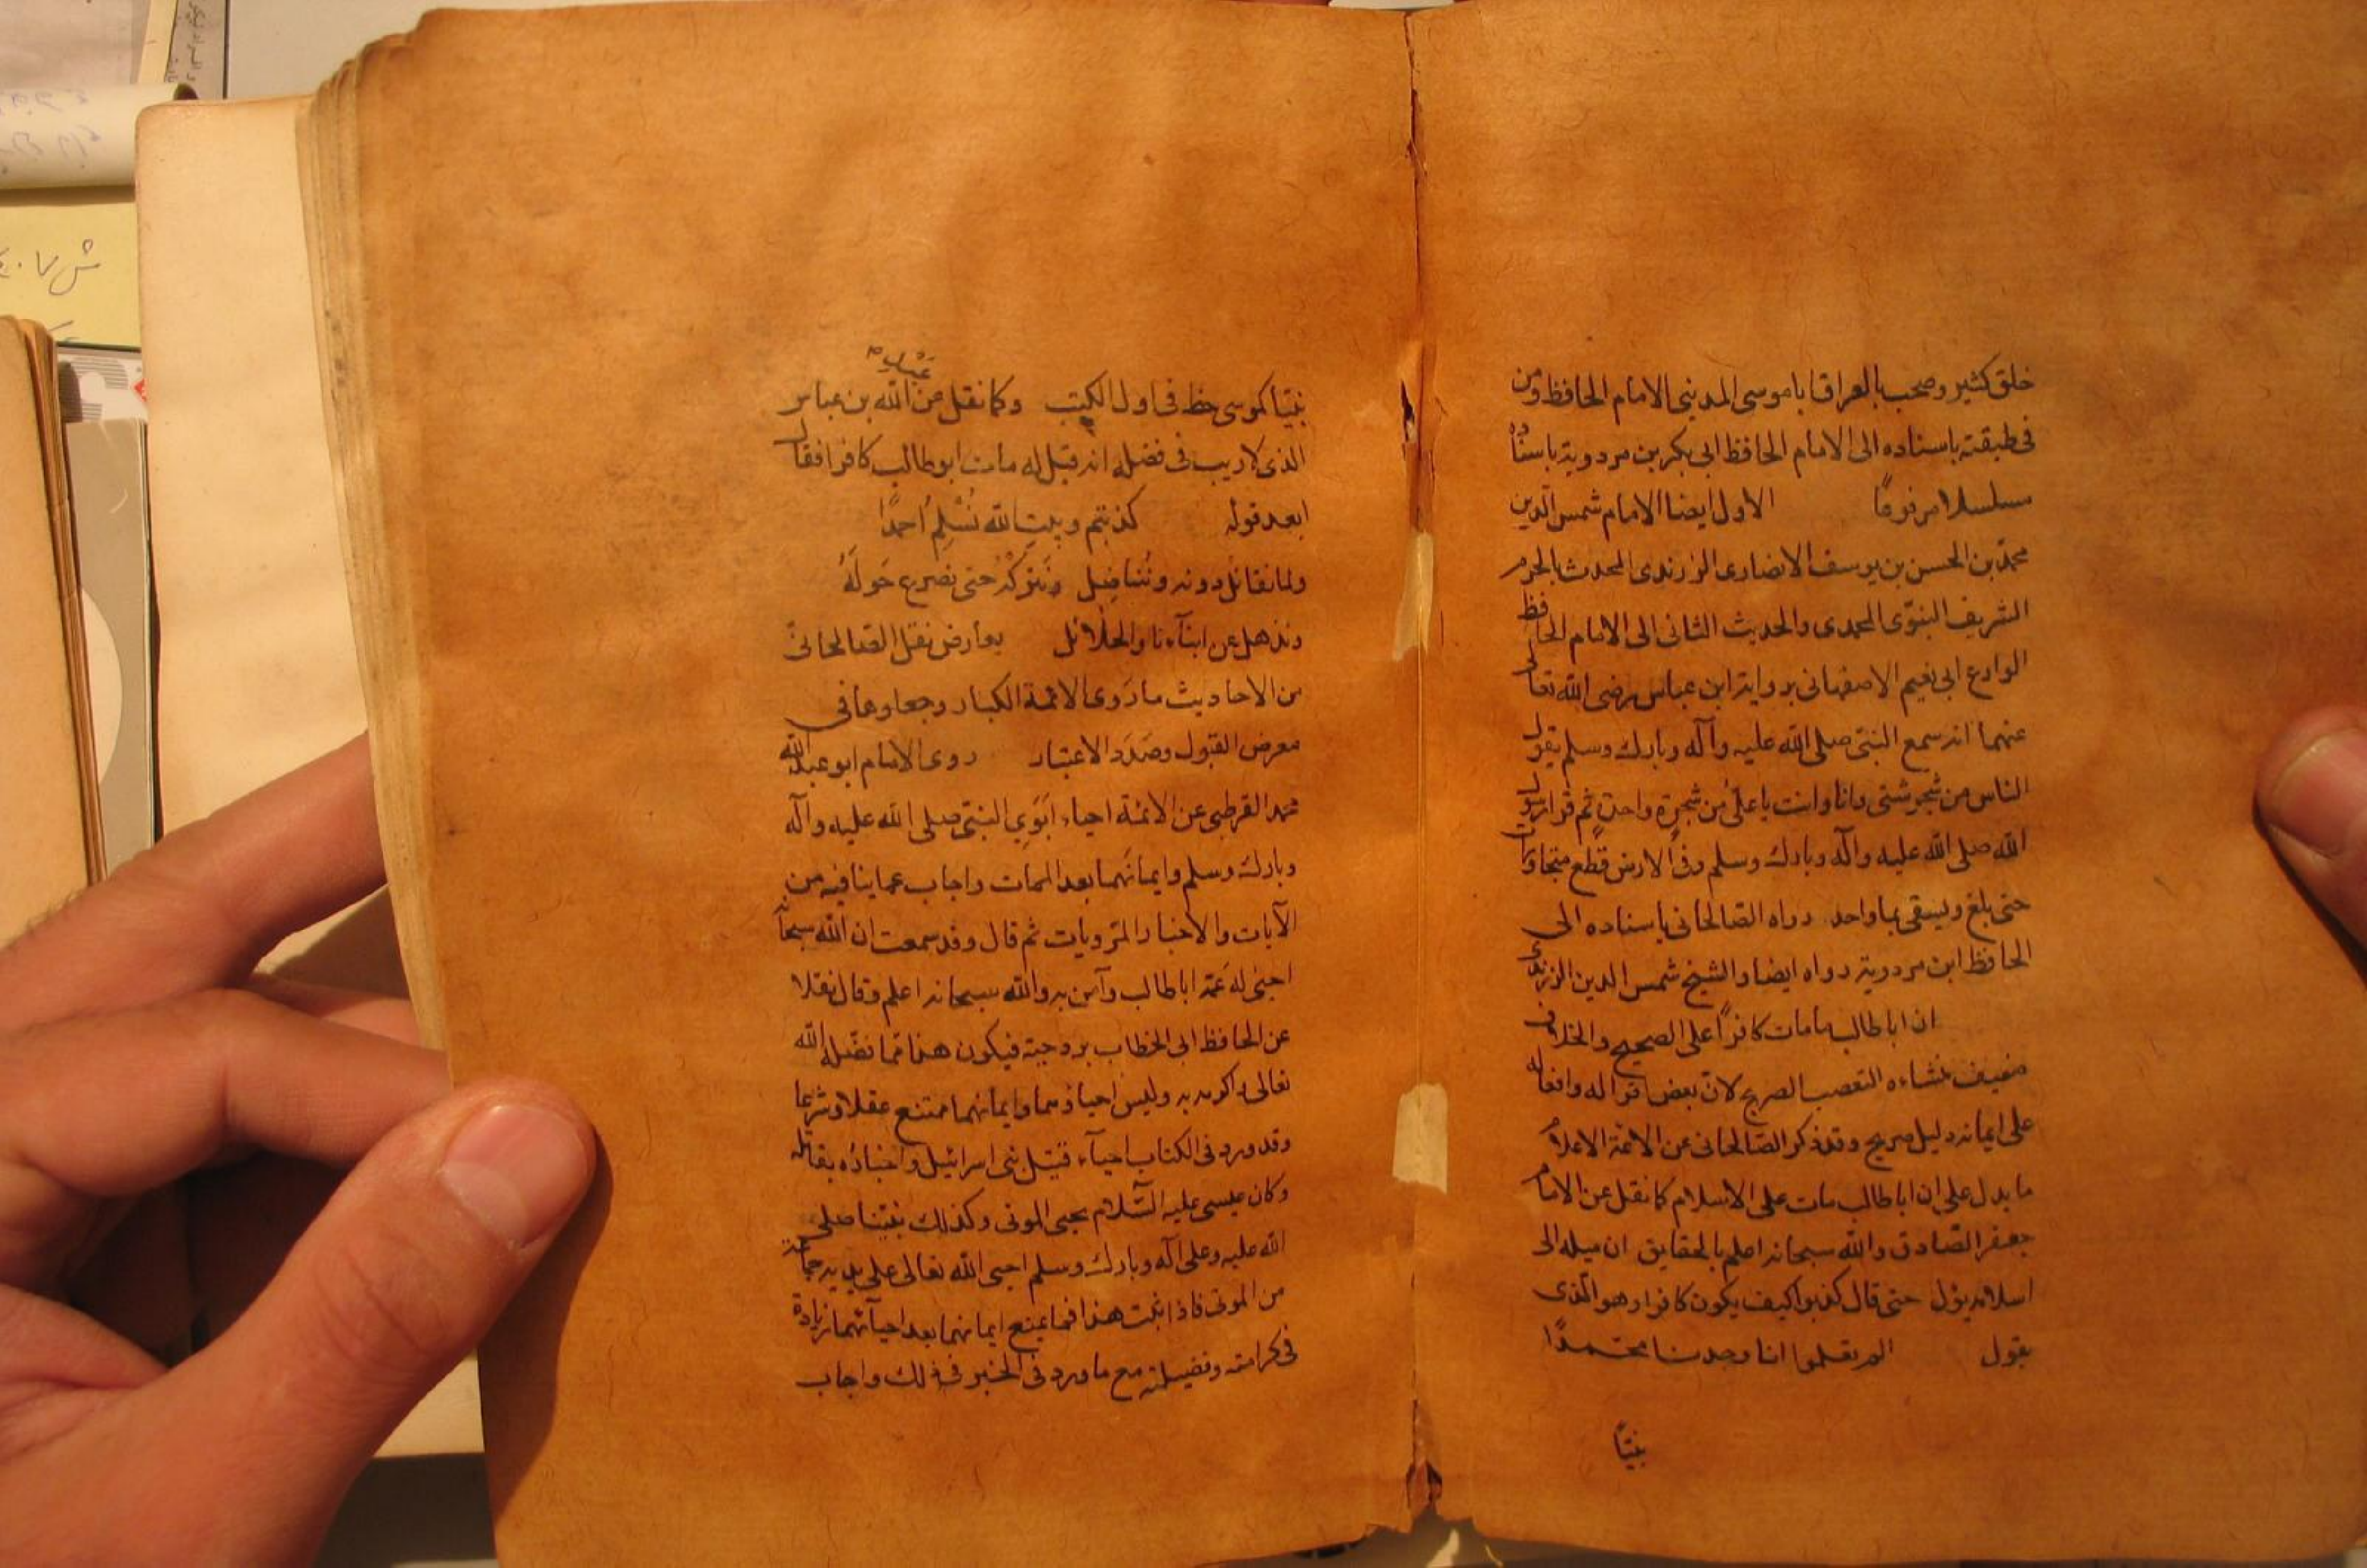 خلق كثير وصحب بالعراق ابا موسى المديني الامام الحافظ ومن
فى طبقته باسناده الى الامام الحافظ ابى بكر بن مردوية باسناده
مسلسلا مرفوعًا الاول ايضا الامام شمس الدين
محمد بن الحسن بن يوسف الانصارى الزرندى المحدث بالحرم
الشريف النبوّى المحمدى والحديث الثانى الى الامام الحافظ
الوادع ابى نعيم الاصفهانى برواية ابن عباس رضى الله تعالى
عنهما انه سمع النبى صلى الله عليه وآله وبارك وسلم يقول
الناس من شجر شتى وانا وانت يا على من شجرة واحدة ثم قرا رسول
الله صلى الله عليه وآله وبارك وسلم وفى الارض قطع متجاورات
حتى بلغ ويسقى بما واحد رواه الصالحانى باسناده الى
الحافظ ابن مردوية رواه ايضا والشيخ شمس الدين الزرندى
ان ابا طالب مامات كافرًا على الصحيح والخلاف
ضعيف منشاءه التعصب الصريح لانّ بعض اقواله وافعاله
على ايمانه دليل صريح وقد ذكر الصالحانى عن الائمة الاعلام
ما يدل على ان ابا طالب مات على الاسلام كما نقل عن الامام
جعفر الصّادق والله سبحانه اعلم بالحقايق ان ميله الى
اسلامه يؤل حتى قال كذبوا كيف يكون كافرا وهو الّذى
يقول الم تعلموا انا وجدنا محتمدًا
نبيّا
عبد
نبيّا كموسى خط فى اول الكتب وكما نقل عن الله بن عباس
الذى لا ريب فى فضله انه قيل له مات ابو طالب كافرا فقال
ابعد قوله كذبتم وبيت الله نُسْلِمُ احمدًا
ولما نقاتل دونه ونُناضِل ونتركه حتى نصرع حَولَهُ
ونذهل عن ابنآءنا والحلائل يعارض نقل الصالحانىّ
من الاحاديث ما رَوى الائمة الكبار وجعلوها فى
معرض القبول وصَدَد الاعتبار روى الامام ابو عبد الله
محمد القرطبى عن الائمة احياء ابَوَىِ النبىّ صلى الله عليه وآله
وبارك وسلم وايمانَهما بعد الممات واجاب عما ينافيه من
الآيات والاخبار المرويات ثم قال وقد سمعت ان الله سبحانه
احيى له عَمّه ابا طالب وآمن به والله سبحانه اعلم وقال نقلا
عن الحافظ ابى الخطاب بن دحية فيكون هذا مما فضّله الله
تعالى واكرمه به وليس احياؤهما وايمانهما ممتنع عقلا وشرعا
وقد ورد فى الكتاب احيآء قتيل بنى اسرائيل واخباره بقاتله
وكان عيسى عليه السّلام يحيى الموتى وكذلك نبيّنا صلى
الله عليه وعلى آله وبارك وسلم احيى الله تعالى على يديه جماعة
من الموتى فاذا ثبت هذا فما يمنع ايمانهما بعد احيآئهما زيادة
فى كرامته وفضيلته مع ما ورد فى الخبر فى ذلك واجاب